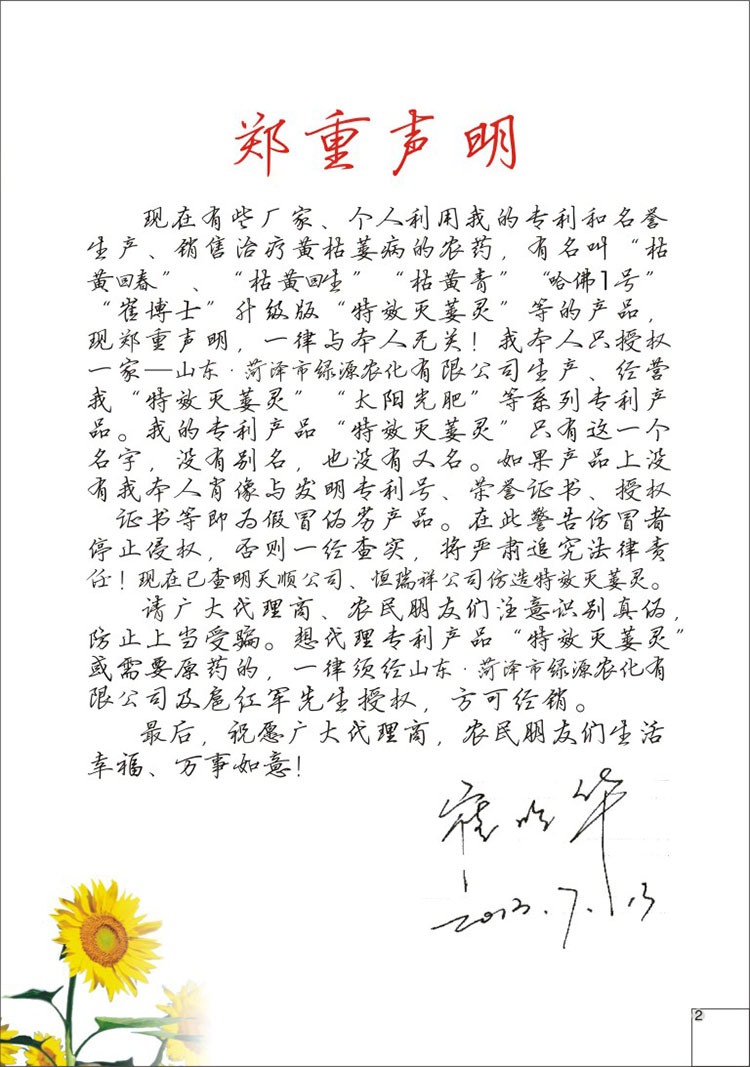 郑重声明
现在有些厂家、个人利用我的专利和名誉
生产、销售治疗黄枯萎病的农药，有名叫“枯
黄回春”、“枯黄回生”“枯黄青”“哈佛1号”
“崔博士”升级版“特效灭萎灵”等的产品，
现郑重声明，一律与本人无关！我本人只授权
一家—山东·菏泽市绿源农化有限公司生产、经营
我“特效灭萎灵”“太阳光肥”等系列专利产
品。我的专利产品“特效灭萎灵”只有这一个
名字，没有别名，也没有又名。如果产品上没
有我本人肖像与发明专利号、荣誉证书、授权
证书等即为假冒伪劣产品。在此警告仿冒者
停止侵权，否则一经查实，将严肃追究法律责
任！现在已查明天顺公司、恒瑞祥公司仿造特效灭萎灵。
请广大代理商、农民朋友们注意识别真伪，
防止上当受骗。想代理专利产品“特效灭萎灵”
或需要原药的，一律须经山东·菏泽市绿源农化有
限公司及扈红军先生授权，方可经销。
最后，祝愿广大代理商，农民朋友们生活
幸福、万事如意！
2